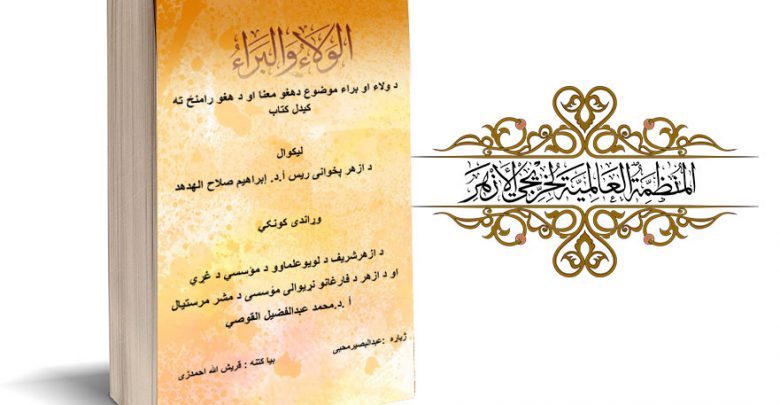 الوَلَاءُ وَالبَرَاءُ
د ولاء او براء موضوع دهغو معنا او د هغو رامنځ ته
کیدل کتاب
لیکوال
د ازهر پخوانی ریس أ.د. إبراهیم صلاح الهدهد
وړاندی کونکي
د ازهرشریف د لویوعلماوو د مؤسسي د غړي
او د ازهر د فارغانو نړیوالی مؤسسی د مشر مرستیال
أ .د.محمد عبدالفضیل القوصي
ژباړه :عبدالبصیرمحبی
بیا کتنه : قریش الله احمدزی
المنظمة العالمية لخريجي الأزهر